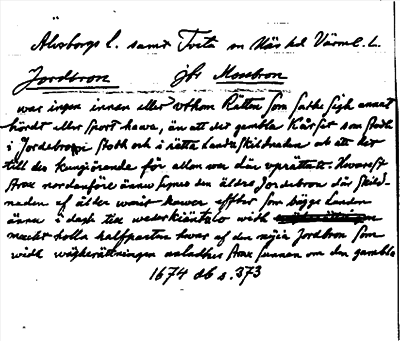 Älvsborgs l. samt Tveta sn Näs hd Värml. L.
Jordbron jfr Mosebron
war ingen innan eller vthom Rätten som sadhe sigh annat
hördt eller sport hawa, än att det gambla Kårset som stodh
i Jordebron stodh och i rätta Landz skildnaden
till des kungiörande för allom war där vprättat. Hwarest
strax nordanföre ännu synes den äldre Jordebron där skild-
naden af ålder warit hawer effter som bägge Landen
ännu i dagh till wederkäntzlo widh
macht holla halfparten hwar af den nyia Jordbron som
widh wägherättningen anladhes strax sunnan om den gambla
1674 db s. 373